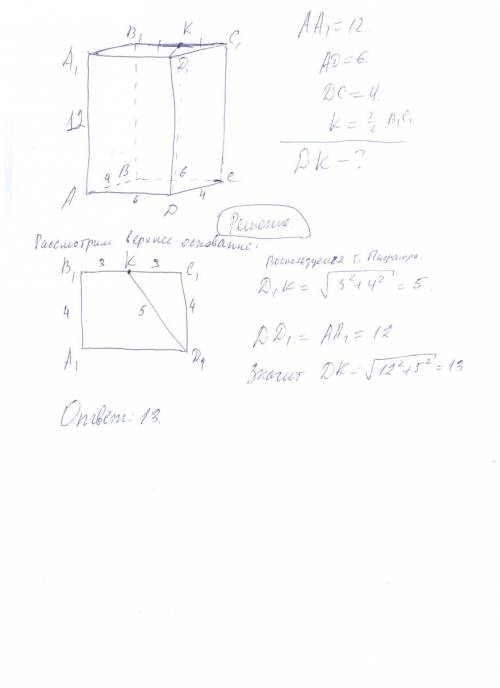 B₁ K C₁
A₁ D₁
12
4 B 6 C
A 6 D 4
AA₁ = 12.
AD = 6.
DC = 4.
K = 1/2 B₁C₁
DK - ?
Решение.
Рассмотрим верхнее основание:
B₁ 3 K 3 C₁
4 5 4
A₁ D₁
Воспользуемся т. Пифагора.
D₁K = √3²+4² = 5.
DD₁ = AA₁ = 12.
Значит DK = √12²+5² = 13
Ответ: 13.